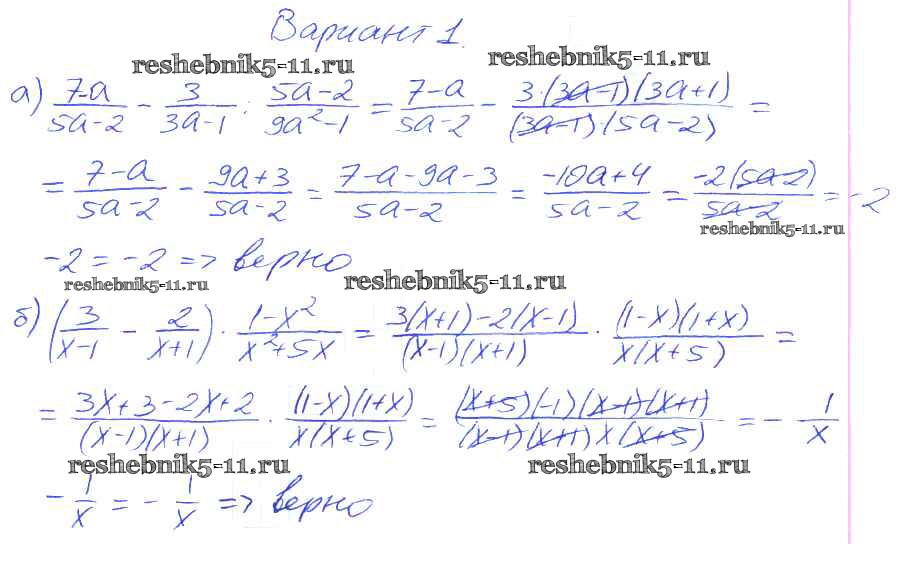 Вариант 1.
reshebnik5-11.ru reshebnik5-11.ru
а) (7-a)/(5a-2) - 3/(3a-1) : (5a-2)/(9a²-1) = (7-a)/(5a-2) - (3·(3a-1)(3a+1))/((3a-1)·(5a-2)) =
= (7-a)/(5a-2) - (9a+3)/(5a-2) = (7-a-9a-3)/(5a-2) = (-10a+4)/(5a-2) = (-2(5a-2))/(5a-2) = -2
reshebnik5-11.ru
-2 = -2 => верно
reshebnik5-11.ru reshebnik5-11.ru
б) (3/(x-1) - 2/(x+1)) · (1-x²)/(x²+5x) = (3(x+1)-2(x-1))/((x-1)(x+1)) · ((1-x)(1+x))/(x(x+5)) =
= (3x+3-2x+2)/((x-1)(x+1)) · ((1-x)(1+x))/(x(x+5)) = ((x+5)(-1)(x-1)(x+1))/((x-1)(x+1)x(x+5)) = - 1/x
reshebnik5-11.ru reshebnik5-11.ru
- 1/x = - 1/x => верно